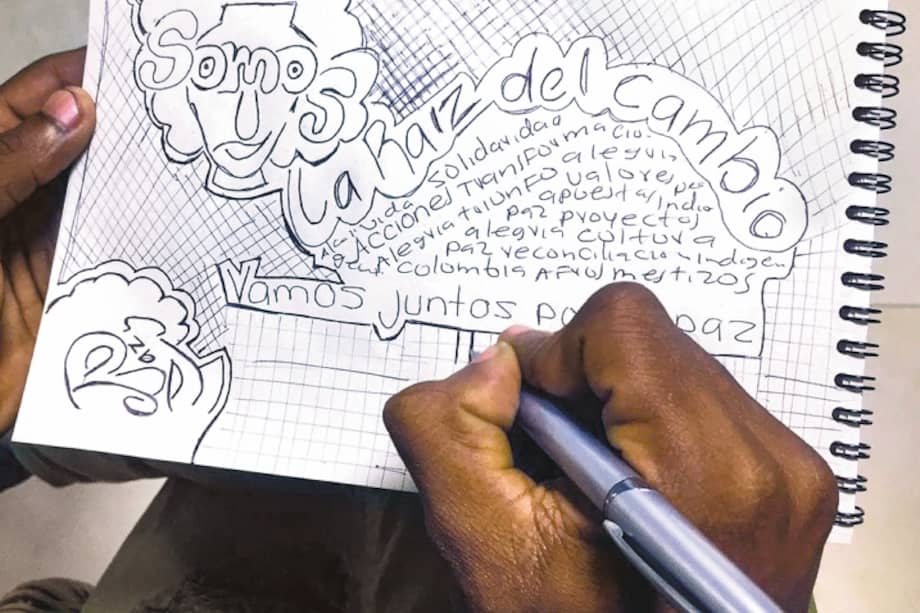 Somos
La Raiz del Cambio
vida solidaridad
ACCIONES TRANSFORMACIO
Alegria triunfo valores
alegria
apuestas/indio
paz proyectos
alegria cultura
paz reconciliacion indigen
Colombia Afro/mestizos
Vamos juntos po paz